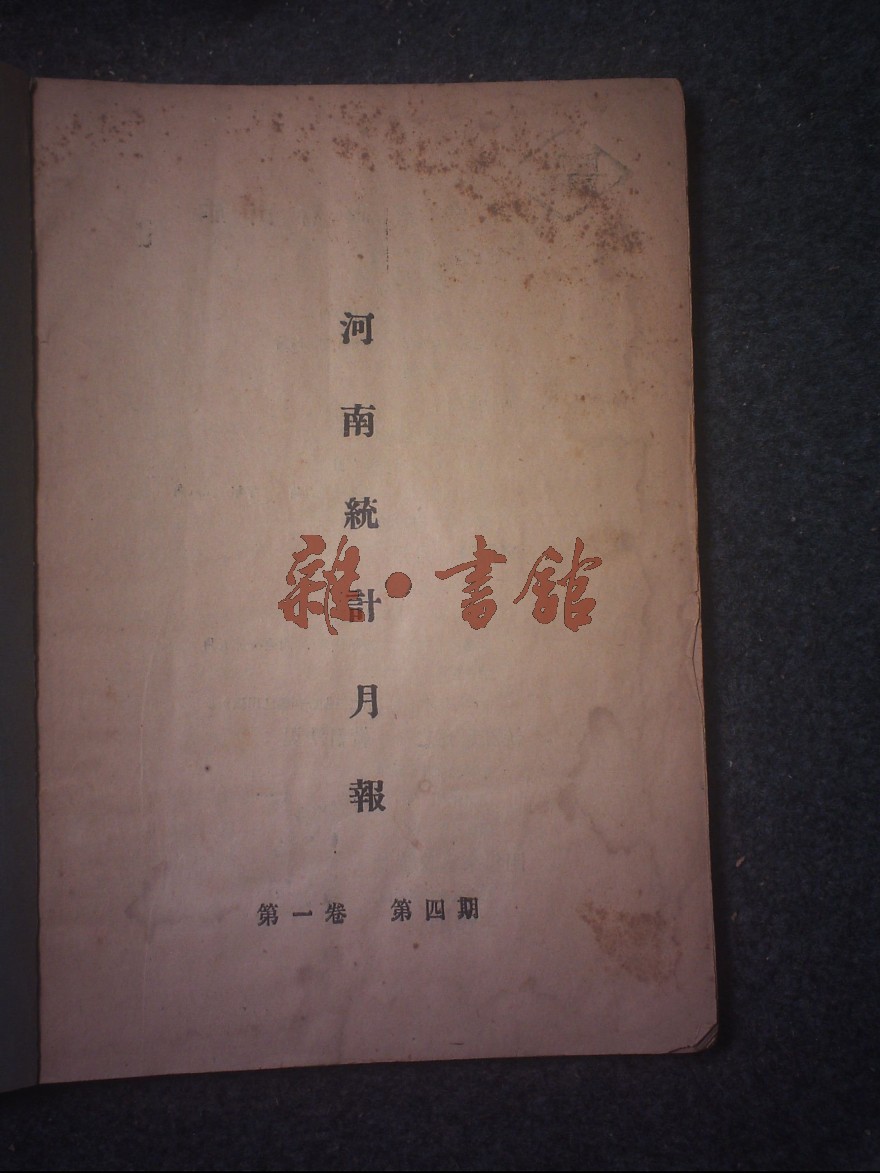 河南統計月報
雜·書館
第一卷 第四期